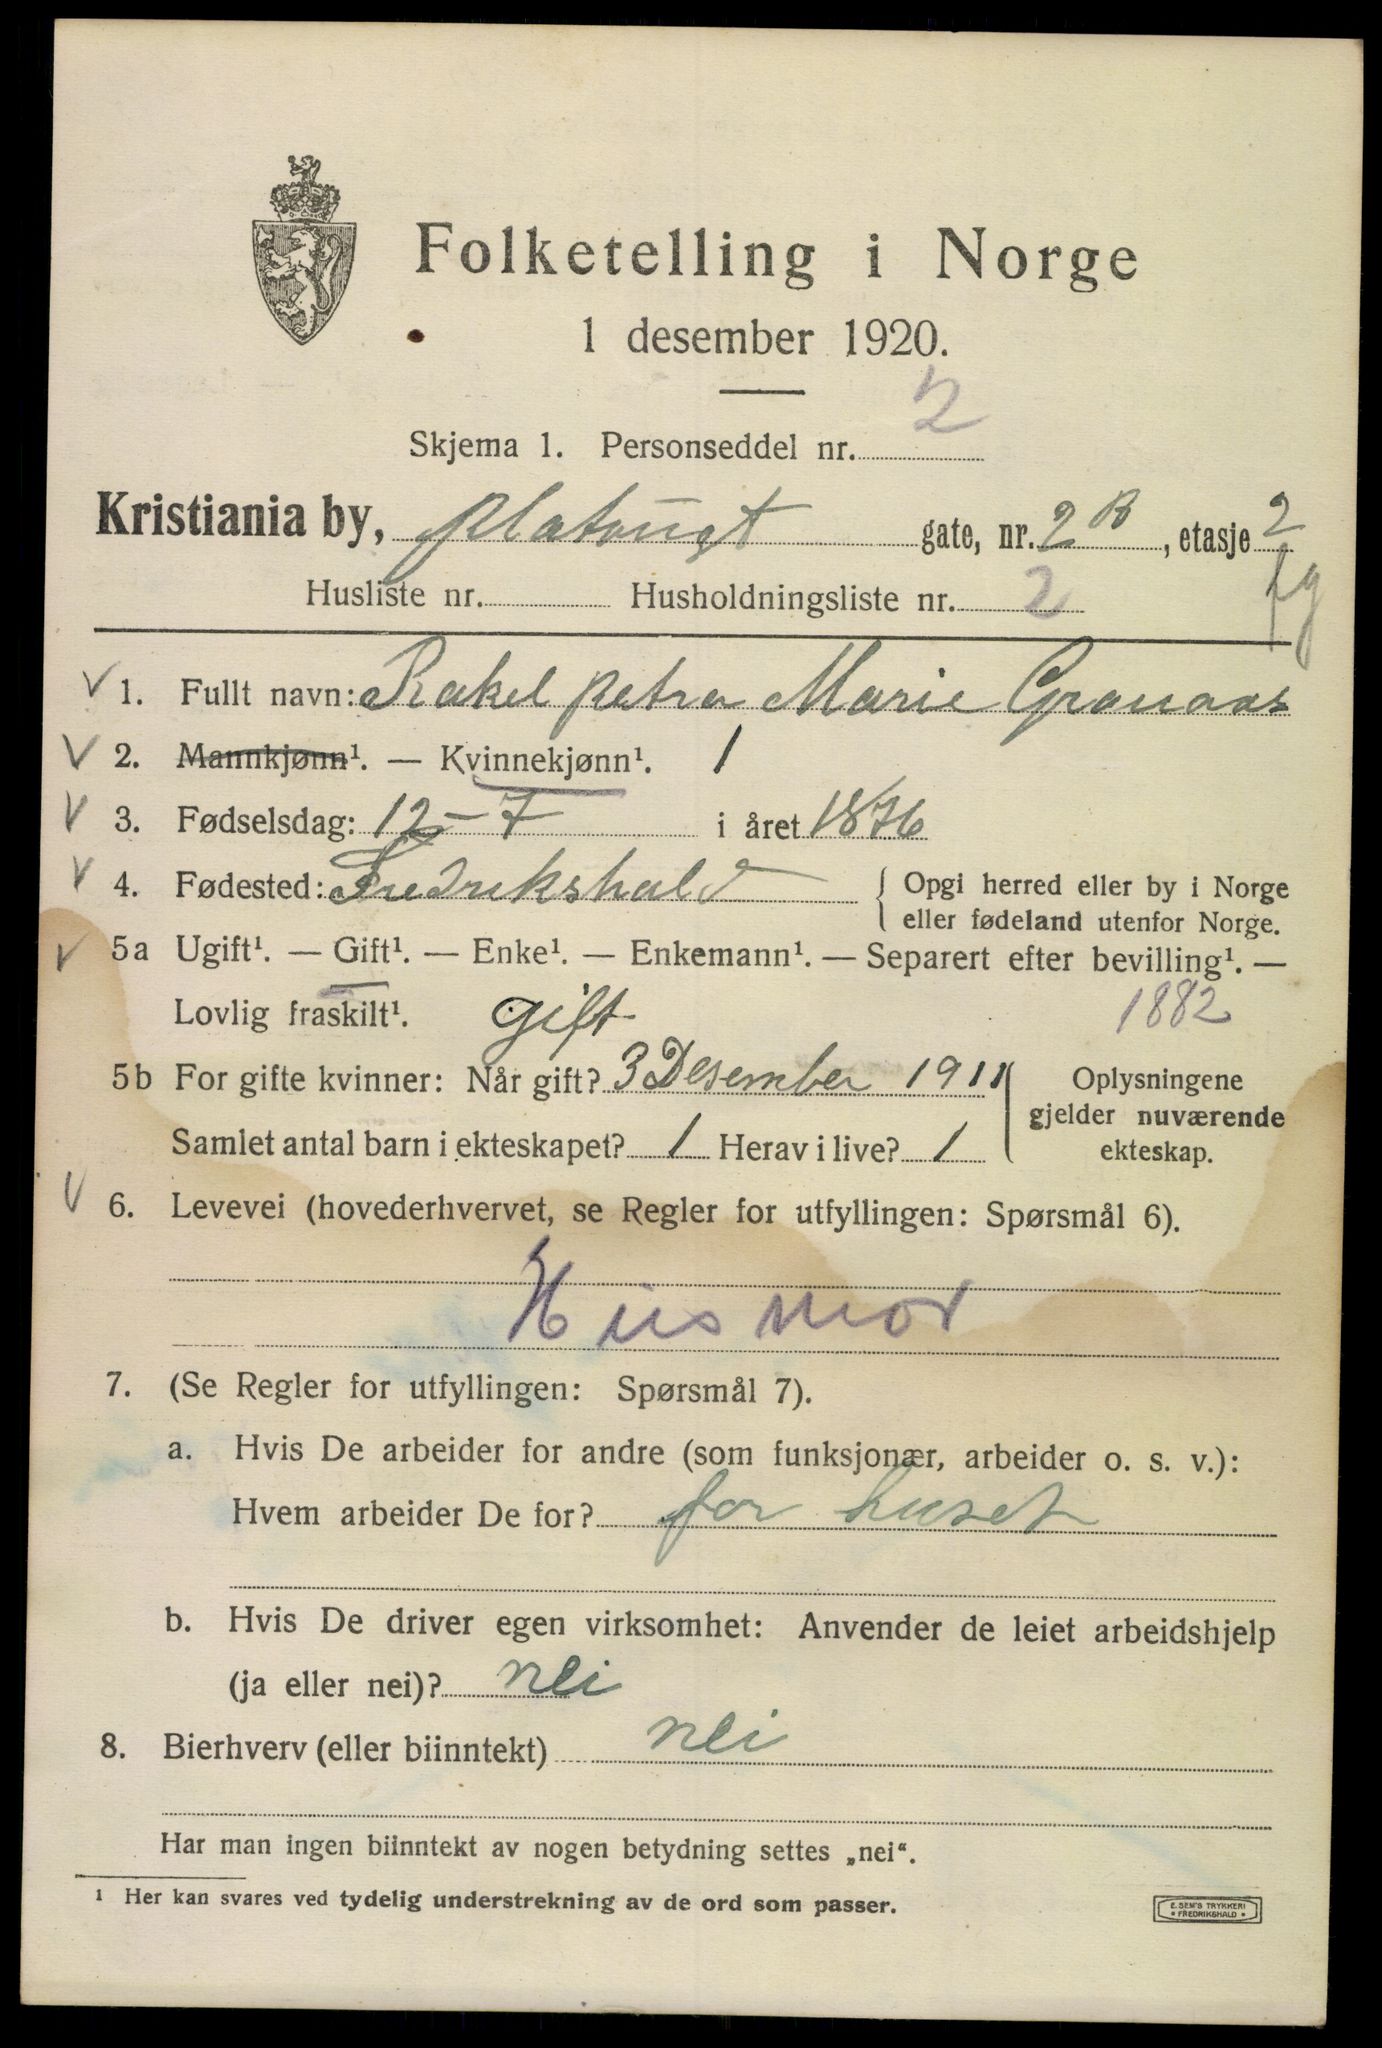 Folketelling i Norge
1 desember 1920.
Skjema 1. Personseddel nr. 2
Kristiania by, gate, nr. 2 B, etasje 2
Husliste nr. Husholdningsliste nr. 2
1. Fullt navn: Rakel petra Marie Granaas
2. Mannkjønn¹. — Kvinnekjønn¹. 1
3. Fødselsdag: 12-7 i året 1876
4. Fødested: Fredrikshald { Opgi herred eller by i Norge
eller fødeland utenfor Norge.
5a Ugift¹. — Gift¹. — Enke¹. — Enkemann¹. — Separert efter bevilling¹. —
Lovlig fraskilt¹. gift 1882
5b For gifte kvinner: Når gift? 3 Desember 1911 } Oplysningene
gjelder nuværende
Samlet antal barn i ekteskapet? 1 Herav i live? 1 ekteskap.
6. Levevei (hovederhvervet, se Regler for utfyllingen: Spørsmål 6).
Husmor
7. (Se Regler for utfyllingen: Spørsmål 7).
a. Hvis De arbeider for andre (som funksjonær, arbeider o. s. v.):
Hvem arbeider De for? for huset
b. Hvis De driver egen virksomhet: Anvender de leiet arbeidshjelp
(ja eller nei)? nei
8. Bierhverv (eller biinntekt) nei
Har man ingen biinntekt av nogen betydning settes „nei“.
¹ Her kan svares ved tydelig understrekning av de ord som passer.
E. SEM'S TRYKKERI
FREDRIKSHALD